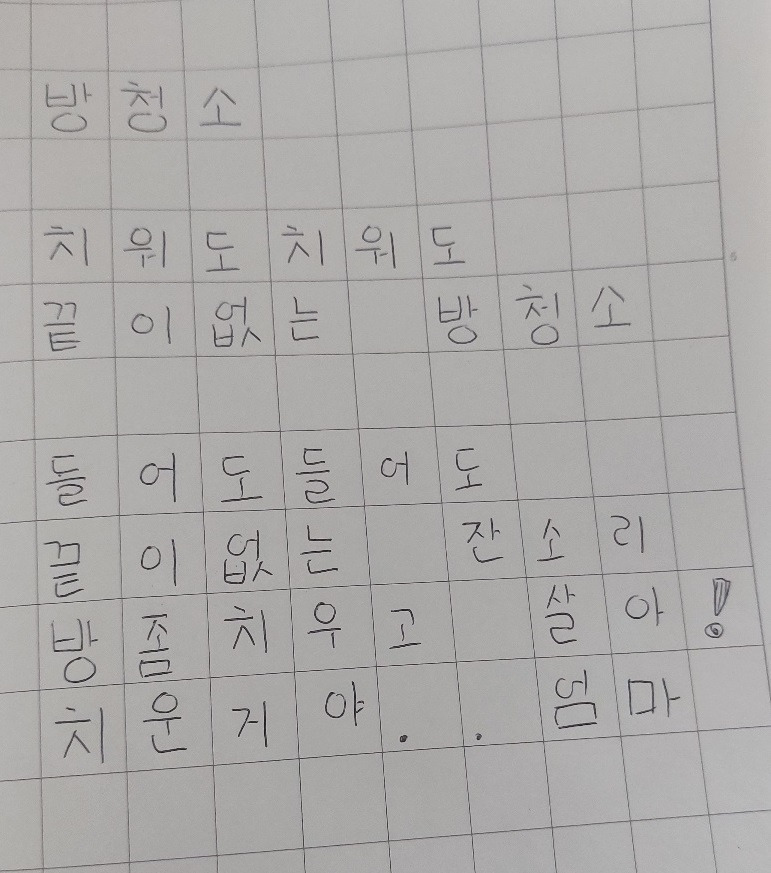 방청소
치워도치워도
끝이없는 방청소
들어도들어도
끝이없는 잔소리
방좀치우고 살아!
치운거야.. 엄마